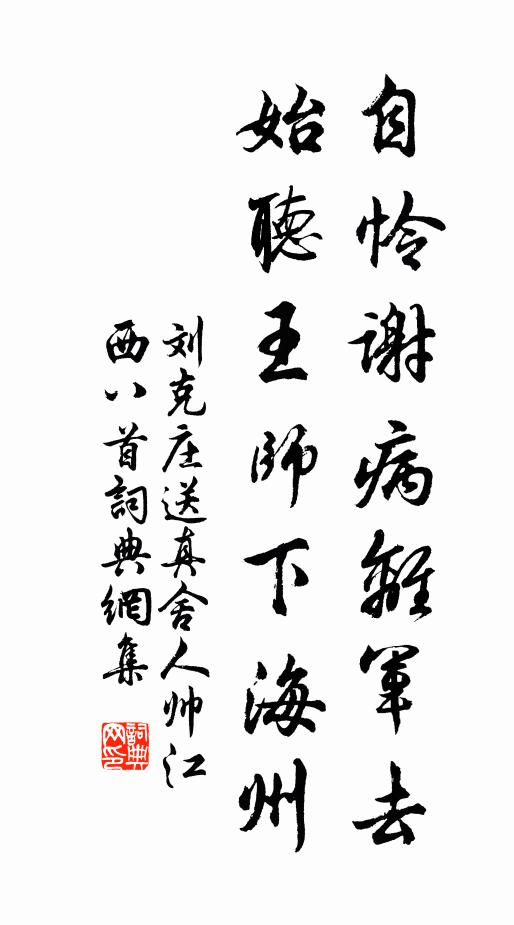 自怜谢病離軍去
始聽王師下海州
刘克庄送真舍人帅江
西八首詞典網集
詞典
网印